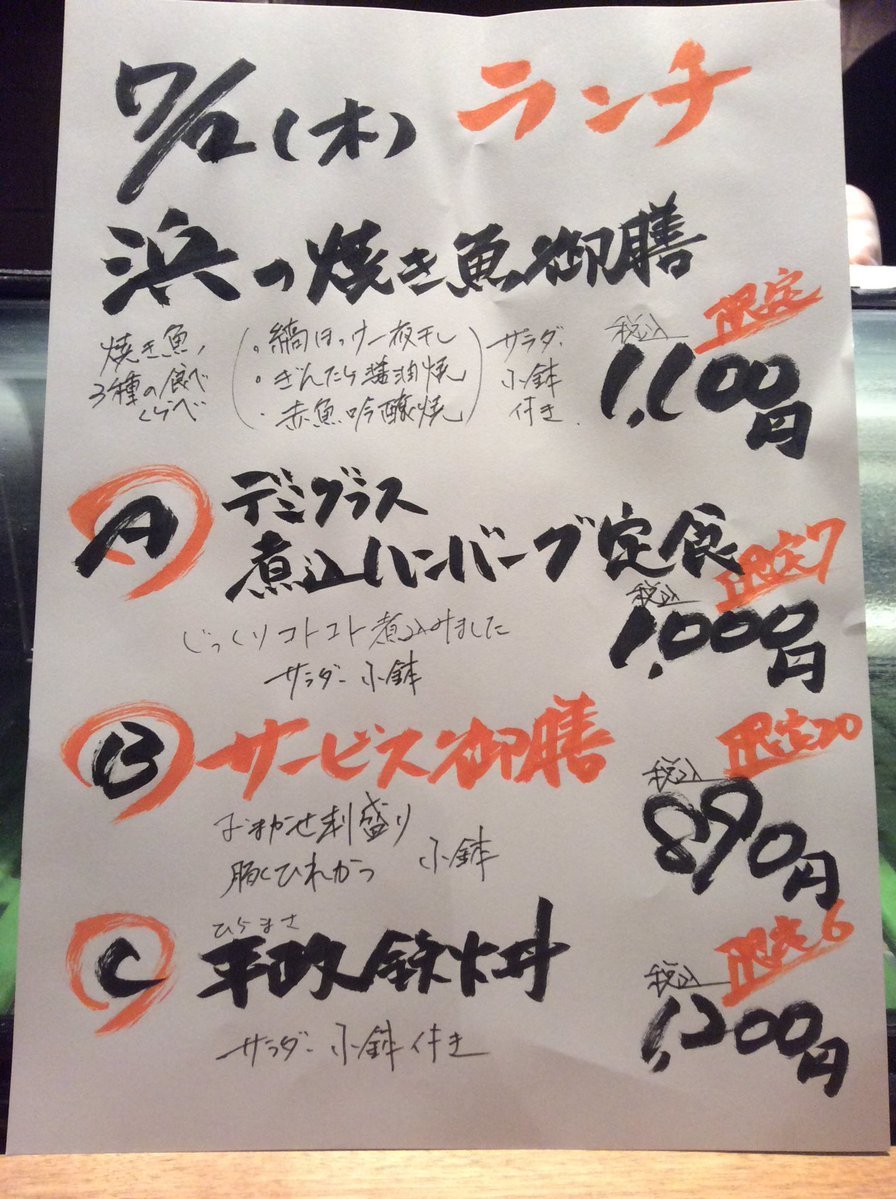 7/2(木) ランチ
浜の焼き魚御膳
限定
焼き魚、
3種の食べ
くらべ
・縞ほっけ一夜干し
・ぎんだら醤油焼
・赤魚吟醸焼
サラダ、
小鉢
付き、
税込
1,100円
A デミグラス
煮込ハンバーグ定食
限定7
じっくりコトコト煮込みました
サラダ、小鉢
税込
1,000円
B サービス御膳
限定20
おまかせ刺盛り
豚ひれかつ 小鉢
税込
890円
ひらまさ
C 平政鉄火丼
限定6
サラダ、小鉢付き
税込
1,200円